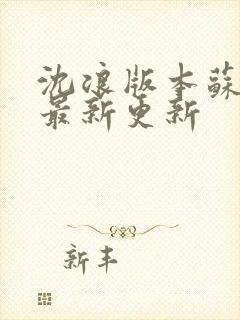 沈浪版本蘇
最新更新
新丰